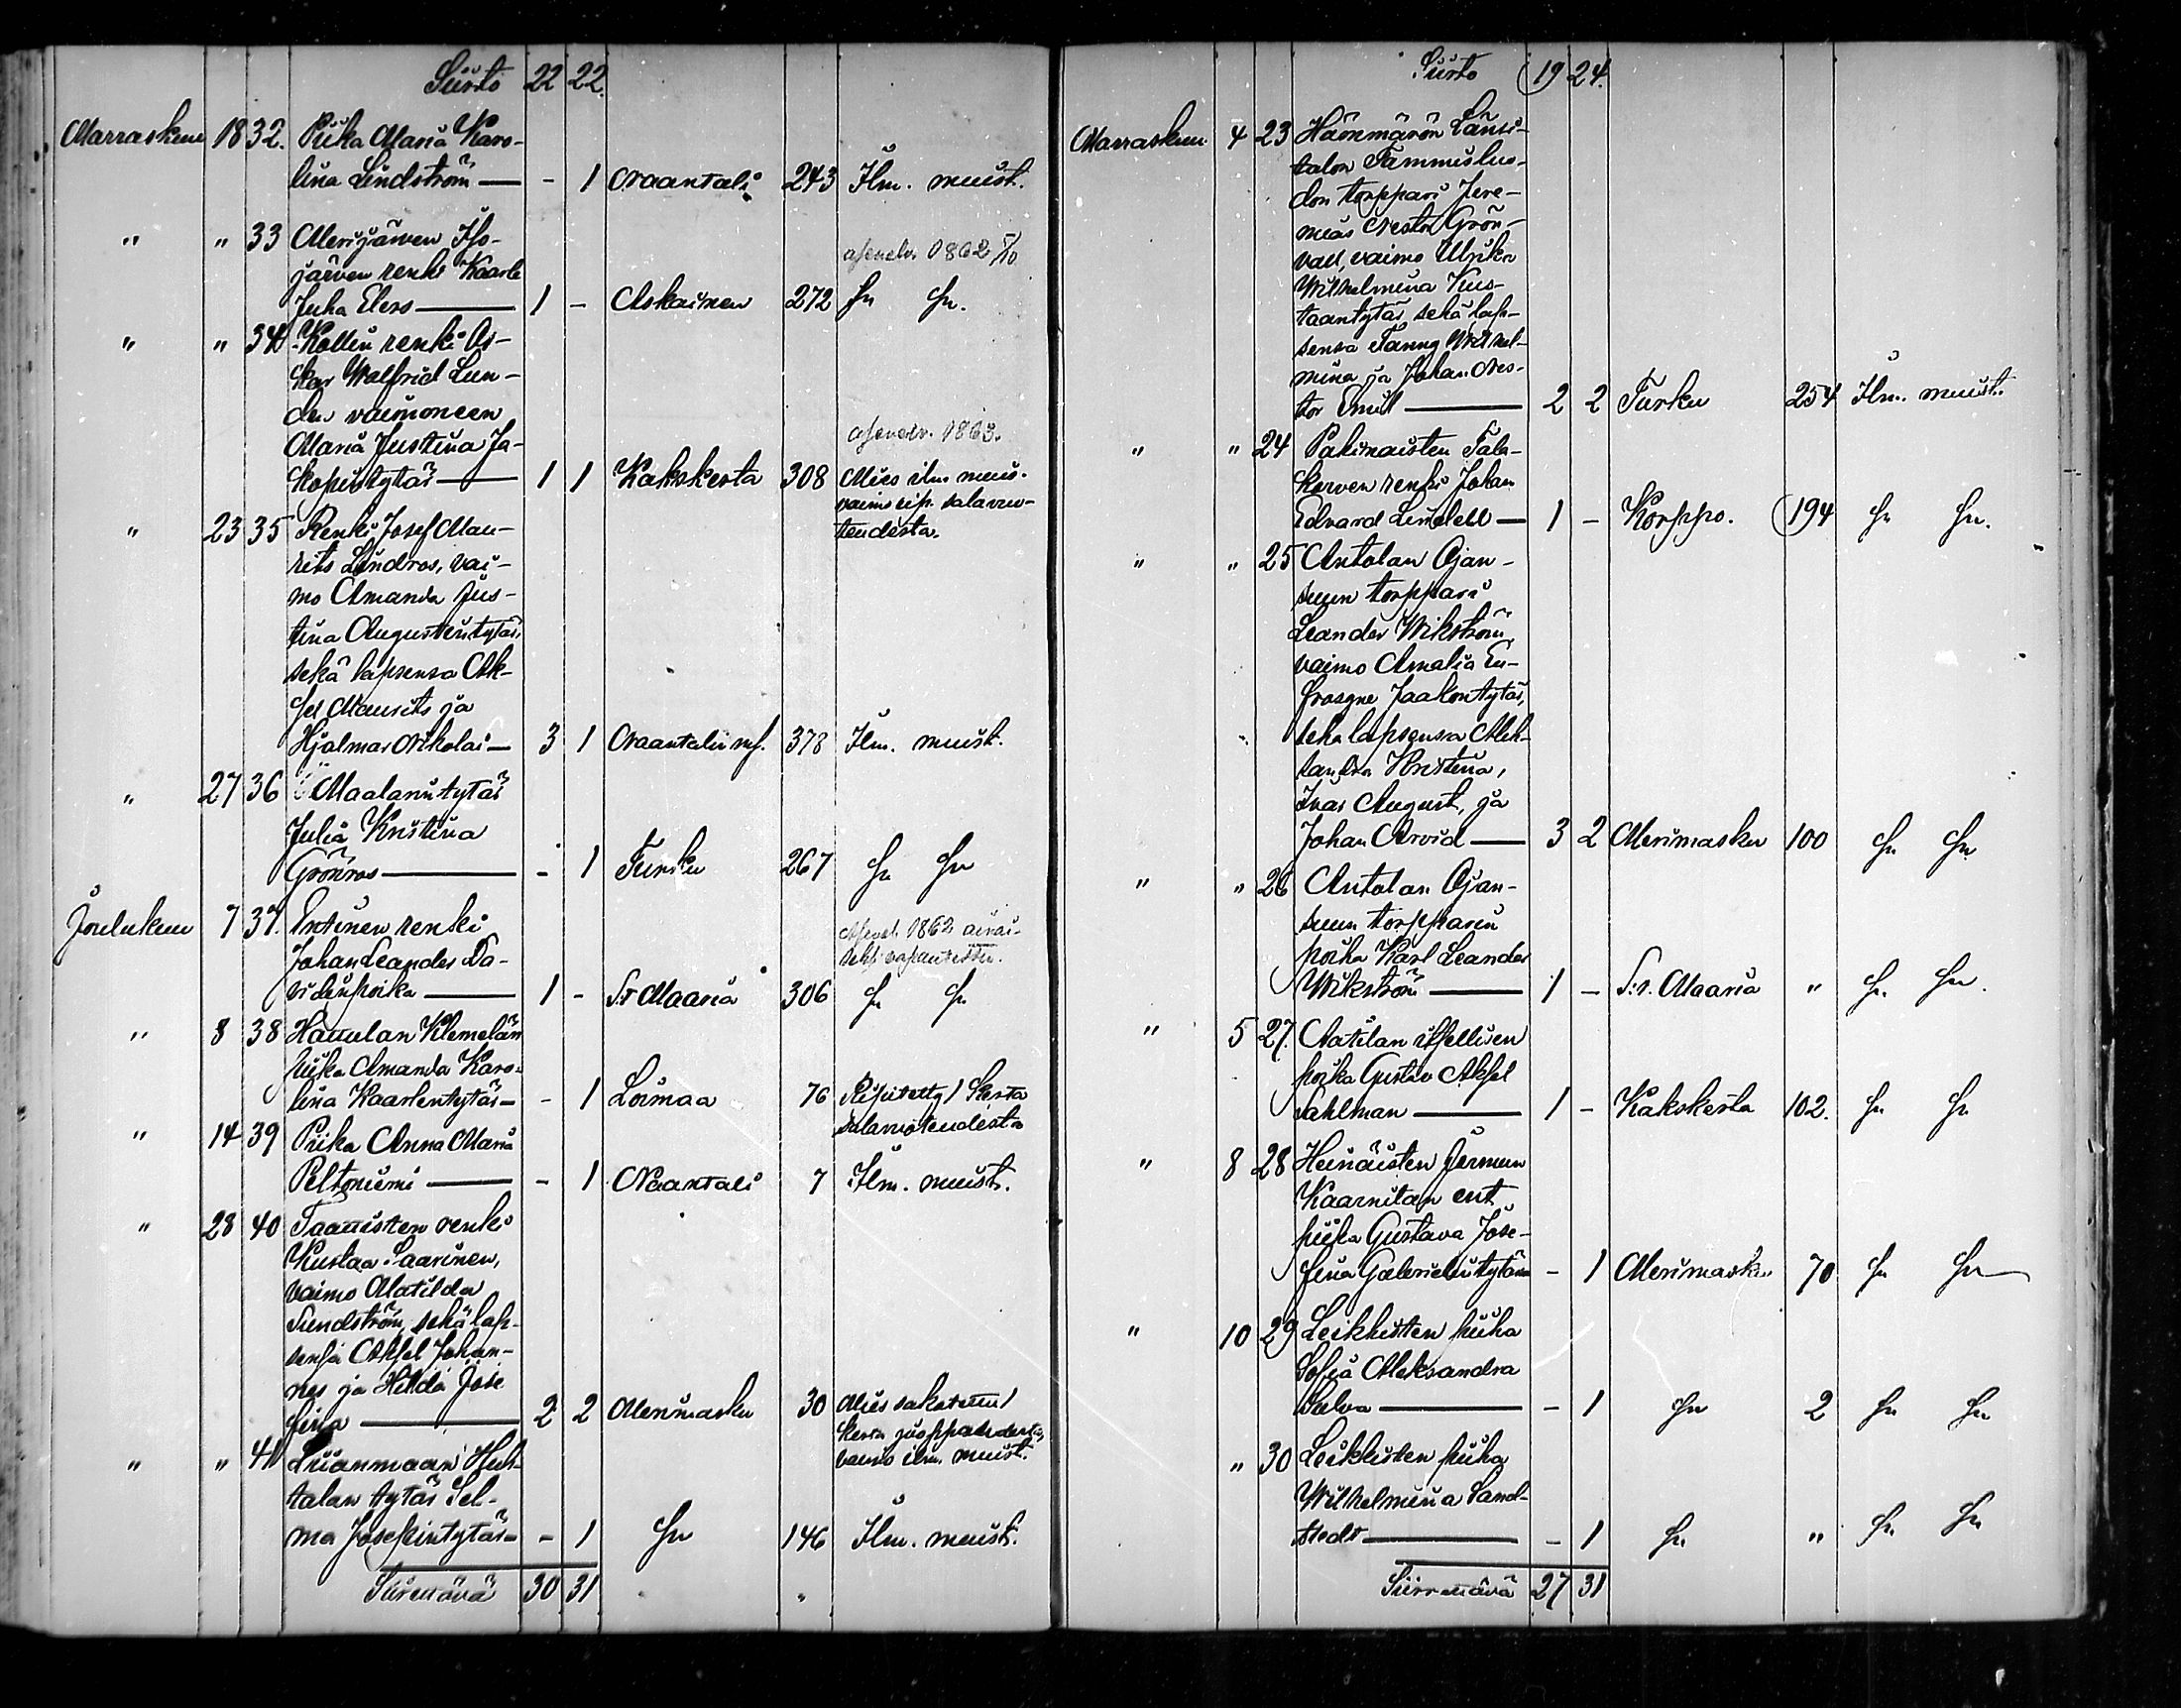 Siirto 22 22.
Marraskuu 18 32. Piika Maria Karo-
lina Lindström — - 1 Naantali 243 Ilm. muist.
" " 33 Merijärven Iso-
järven renki Kaarle asevelv. 1862 5/10
Juha Elers — 1 - Askainen 272 Sn Sn.
" " 34 Kollin renki Os-
kar Walfrid Lun-
den vaimoneen
Maria Justina Ja- asevelv. 1863.
kopintytär — 1 1 Kakskerta 308 Mies ilm. muis.
vaimo rip. salavuo-
teudesta.
" 23 35 Renki Josef Mau-
rits Lindros, vai-
mo Amanda Jus-
tina Augustintytär,
sekä lapsensa Ak-
sel Maurits ja
Hjalmar Nikolai — 3 1 Naantalin msk. 378 Ilm. muist.
" 27 36 Maalarintytär
Julia Kristina
Grönros — - 1 Turku 267 Sn Sn
Joulukuu 7 37. renki
Johan Leander Da- asevel. 1862
vidinpoika — 1 - S:t Maaria 306 Sn Sn
" 8 38 Haunlan Klemelän
piika Amanda Karo-
lina Kaarlentytär — - 1 Loimaa 76 Ripitetty 1 kerta
salavuoteudesta
" 14 39 Piika Anna Maria
Peltoniemi — - 1 Naantali 7 Ilm. muist.
" 28 40 Taattisten renki
Kustaa Saarinen,
vaimo Matilda
Sundström, sekä lap-
sensa Aksel Johan-
nes ja Hilda Jose
fina — 2 2 Merimasku 30 Mies sakotettu 1
kerta juoppaudesta,
vaimo ilm. muist.
" " 41 Luianmaan Huh-
talan tytär Sel-
ma Josefintytär — - 1 Sn 146 Ilm. muist.
Siirrettävä 30 31
Siirto 19 24.
Marraskuu 4 23 Hammarön Länsi-
talon Tammisluo-
don torppari Jere-
mias Nestor Grön-
vall, vaimo Ulrika
Wilhelmina Kus-
taantytär sekä lap-
sensa Fanny Wilhel-
mina ja Johan Nes-
tor Emil — 2 2 Turku 254 Ilm. muist.
" " 24 Pakinaisten Tala-
korven renki Johan
Edvard Lindell — 1 - Korppo. 194 Sn Sn.
" " 25 Antolan Ojan-
suun torppari
Leander Wikström,
vaimo Amalia Eu-
frosyne Jaakontytär,
sekä lapsensa Alek-
sandra Kristina,
Ivar August, ja
Johan Arvid — 3 2 Merimasku 100 Sn Sn
" " 26 Antolan Ojan-
suun torpparin
poika Karl Leander
Wikström — 1 - S:t. Maaria " Sn Sn.
" 5 27. Natilan itsellisen
poika Gustav Aksel
Sahlman — 1 - Kakskerta 102. Sn Sn
" 8 28 Heinäisten Järmun
Kaarnilan ent.
piika Gustava Jose-
fina Gabrielintytär — - 1 Merimasku 70 Sn Sn
" 10 29 Leikkisten piika
Sofia Aleksandra
Salva — - 1 Sn 2 Sn Sn
" 30 Leikkisten piika
Wilhelmina Sand-
stedt — - 1 Sn " Sn Sn
Siirrettävä 27 31